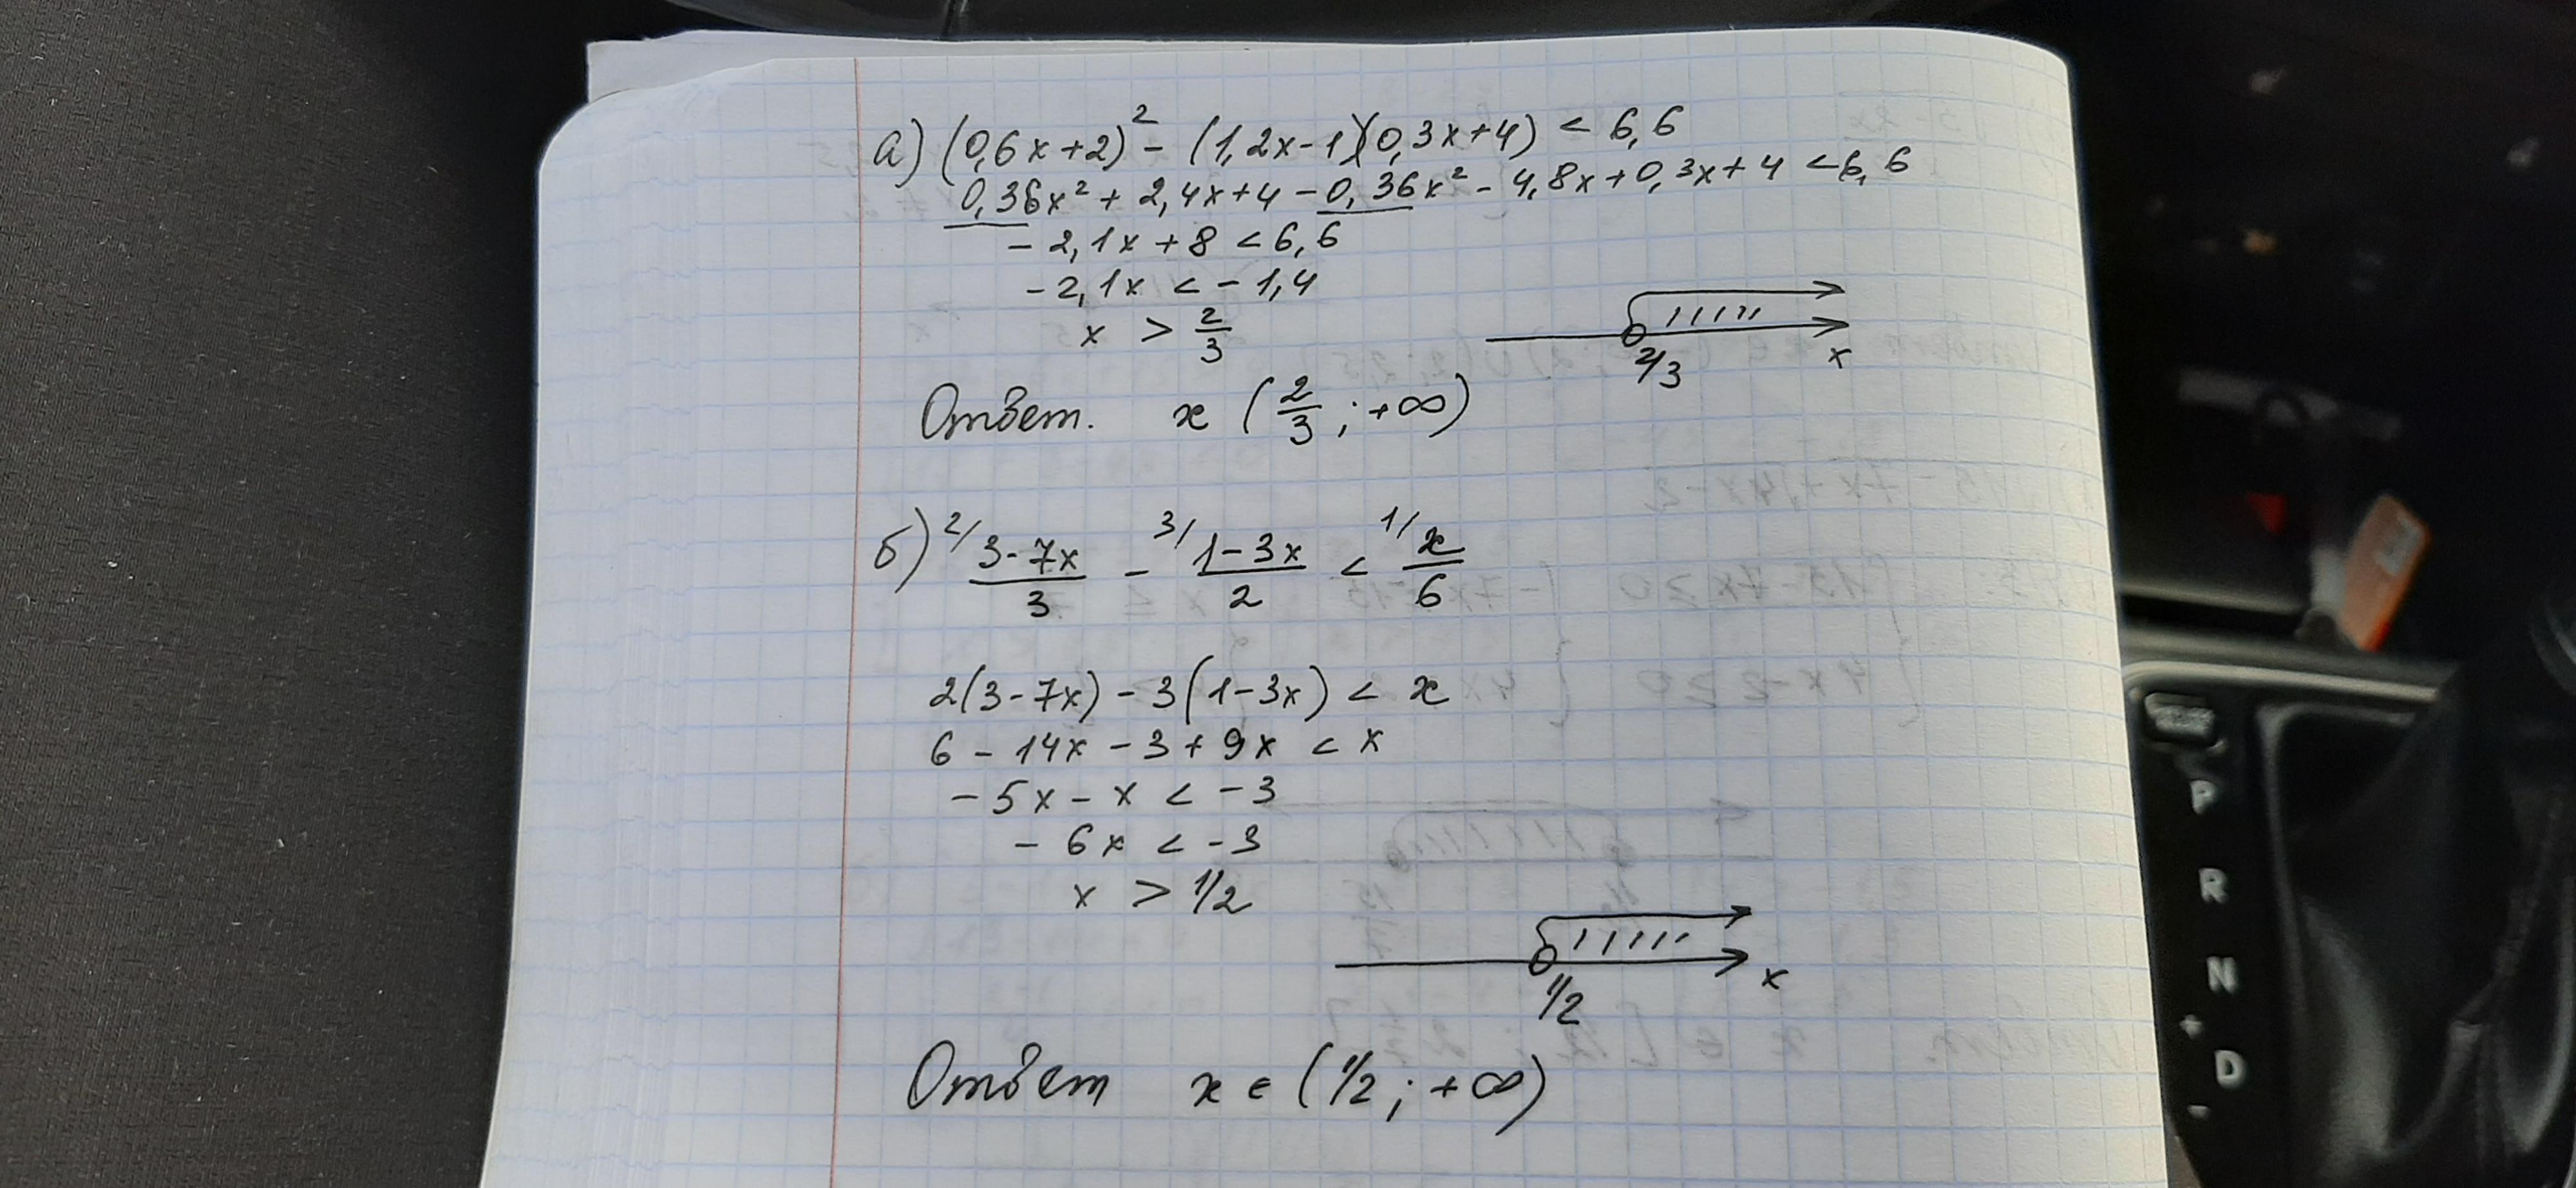 а) (0,6x+2)² - (1,2x-1)(0,3x+4) < 6,6
0,36x² + 2,4x+4 - 0,36x² - 4,8x+0,3x+4 < 6,6
- 2,1x + 8 < 6,6
- 2,1x < - 1,4
x > 2/3
2/3 x
Ответ. x (2/3 ; +∞)
б) 2/ 3-7x/3 - 3/ 1-3x/2 < 1/ x/6
2(3-7x) - 3(1-3x) < x
6 - 14x - 3 + 9x < x
- 5x - x < - 3
- 6x < - 3
x > 1/2
1/2 x
Ответ x ∈ (1/2 ; +∞)
P
R
N
+
D
-